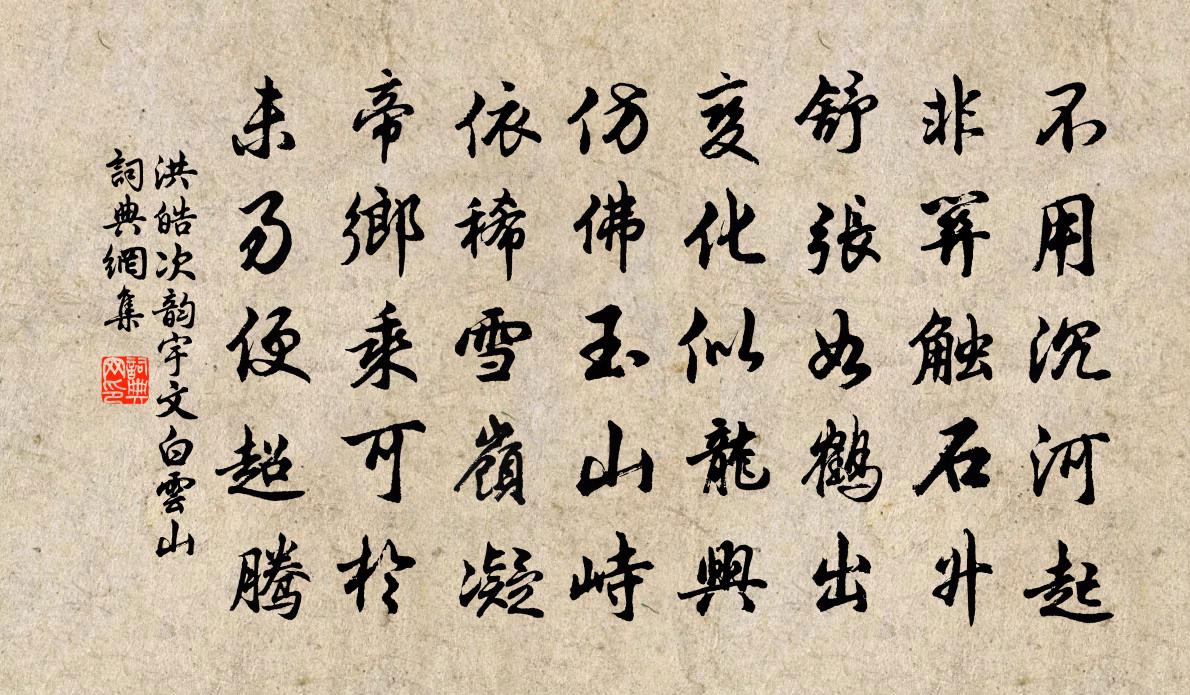 不用沉河起
非關触石升
舒張如鶴出
変化似龍興
仿佛玉山峙
依稀雪嶺凝
帝鄉乘可於
未易便超騰
洪皓次韵宇文白雲山
詞典網集
詞典网印